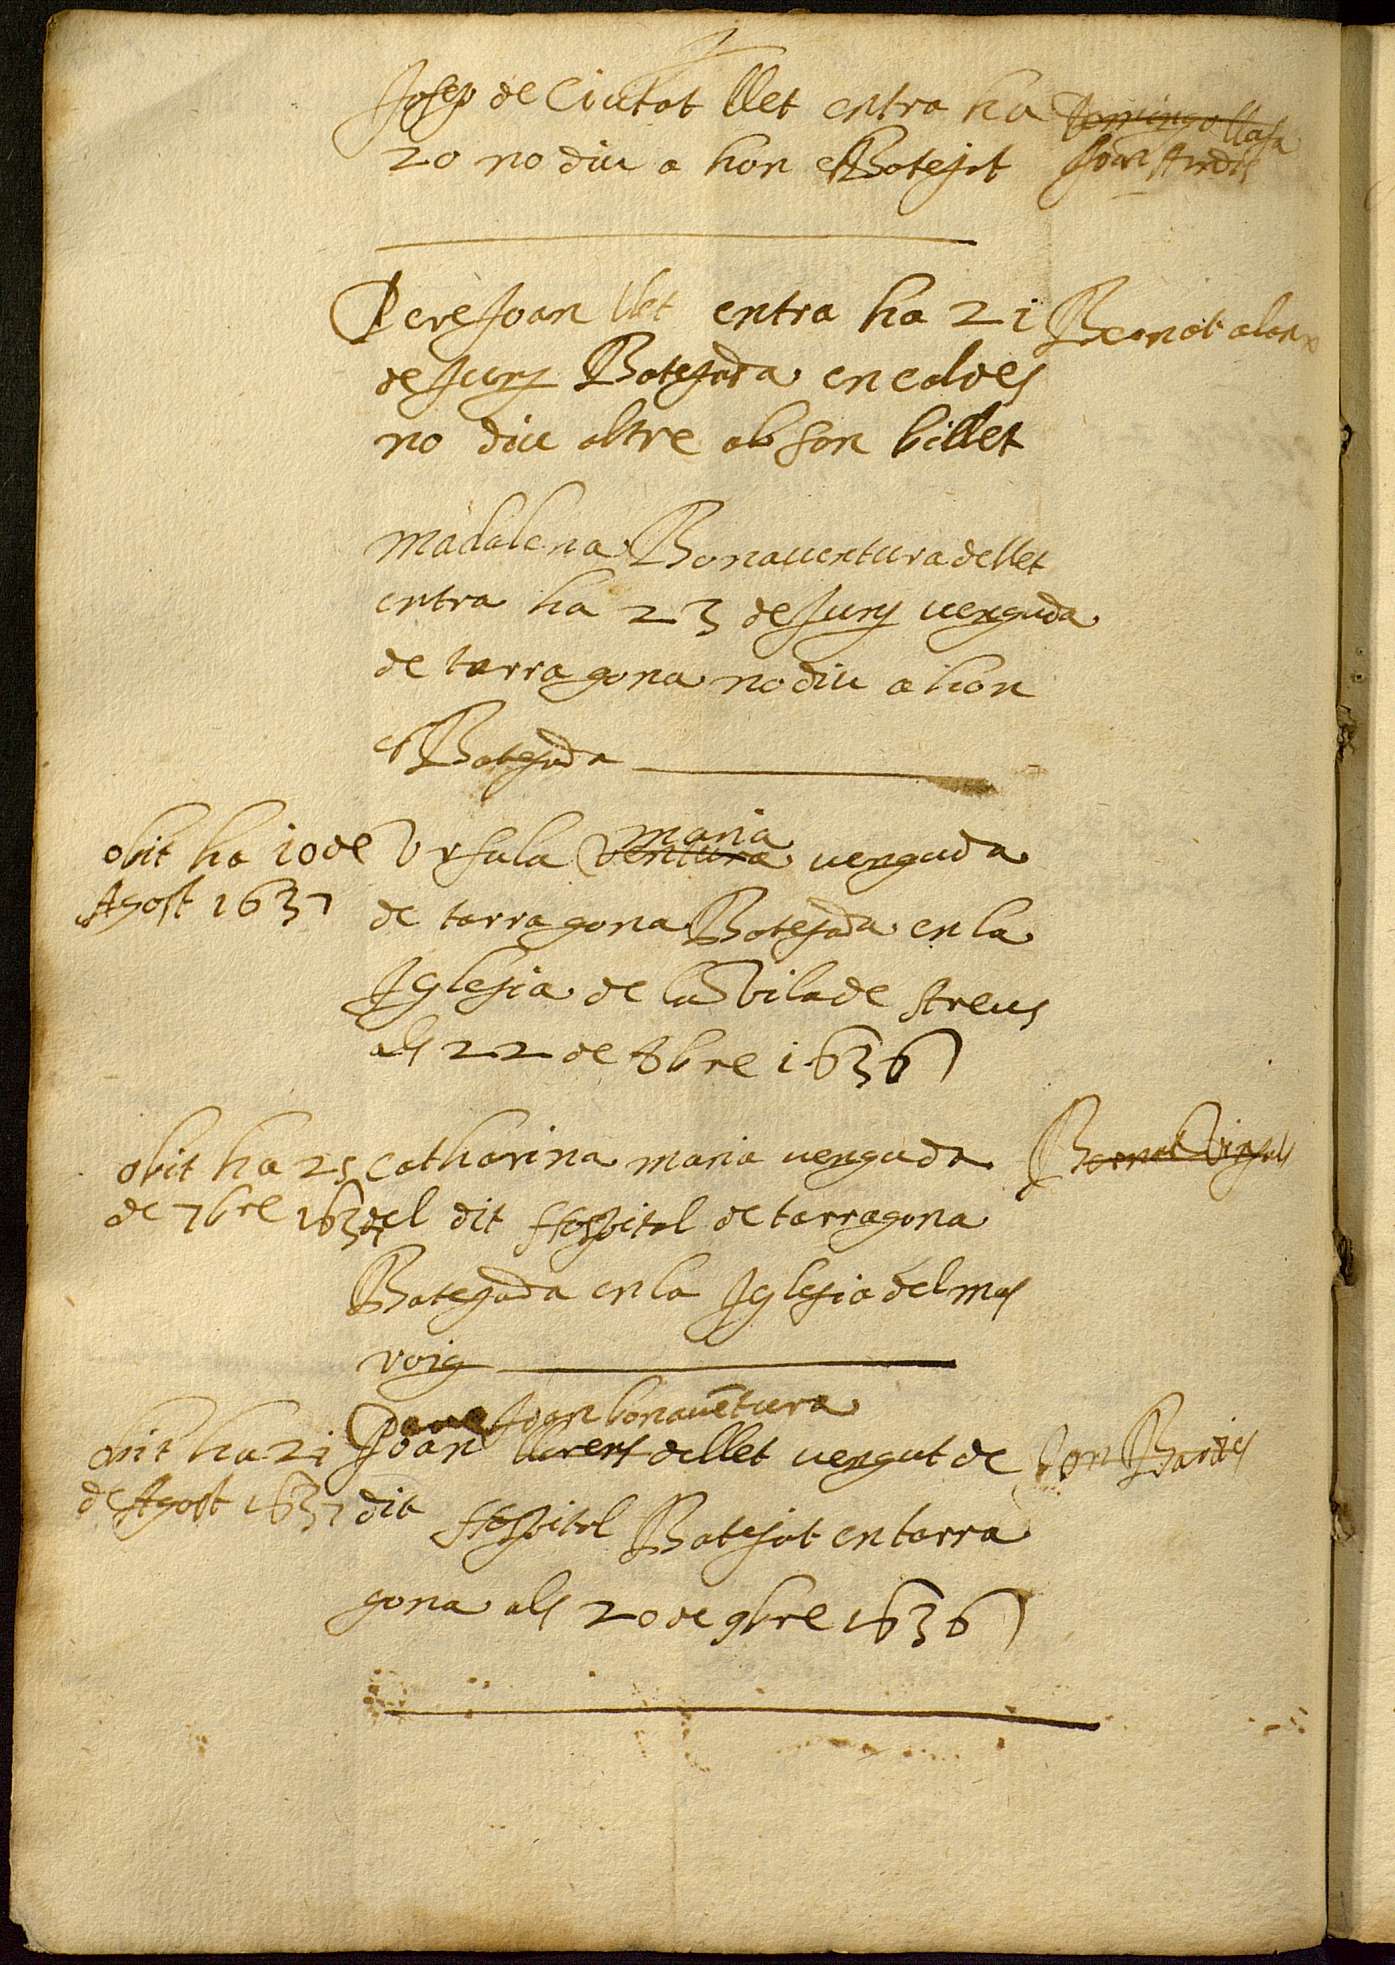 Josep de Ciutat llet entra ha
20 no diu a hon es Batejat
Domingo llasa
Joan
Pere Joan llet entra ha 21
Bernat
de Juny Batejada en caldes
no diu altre ab son billet
Madalena Bonauentura de llet
entra ha 23 de Juny uenguda
de tarragona no diu a hon
es Batejada
obit ha 10 de
Agost 1637
maria
Vrsula Ventura uenguda
de tarragona Batejada en la
Iglesia de la Vila de Areus
als 22 de 8bre 1636
obit ha 25
de 7bre 1637
Catharina maria uenguda
Bernat
del dit Hospital de tarragona
Batejada en la Iglesia del mas
roig
obit ha 21
de Agost 1637
Pere Joan bonauētura
Joan llorens de llet uengut de
Joan Bardes
dit Hospital Batejat en tarra
gona als 20 de 9bre 1636